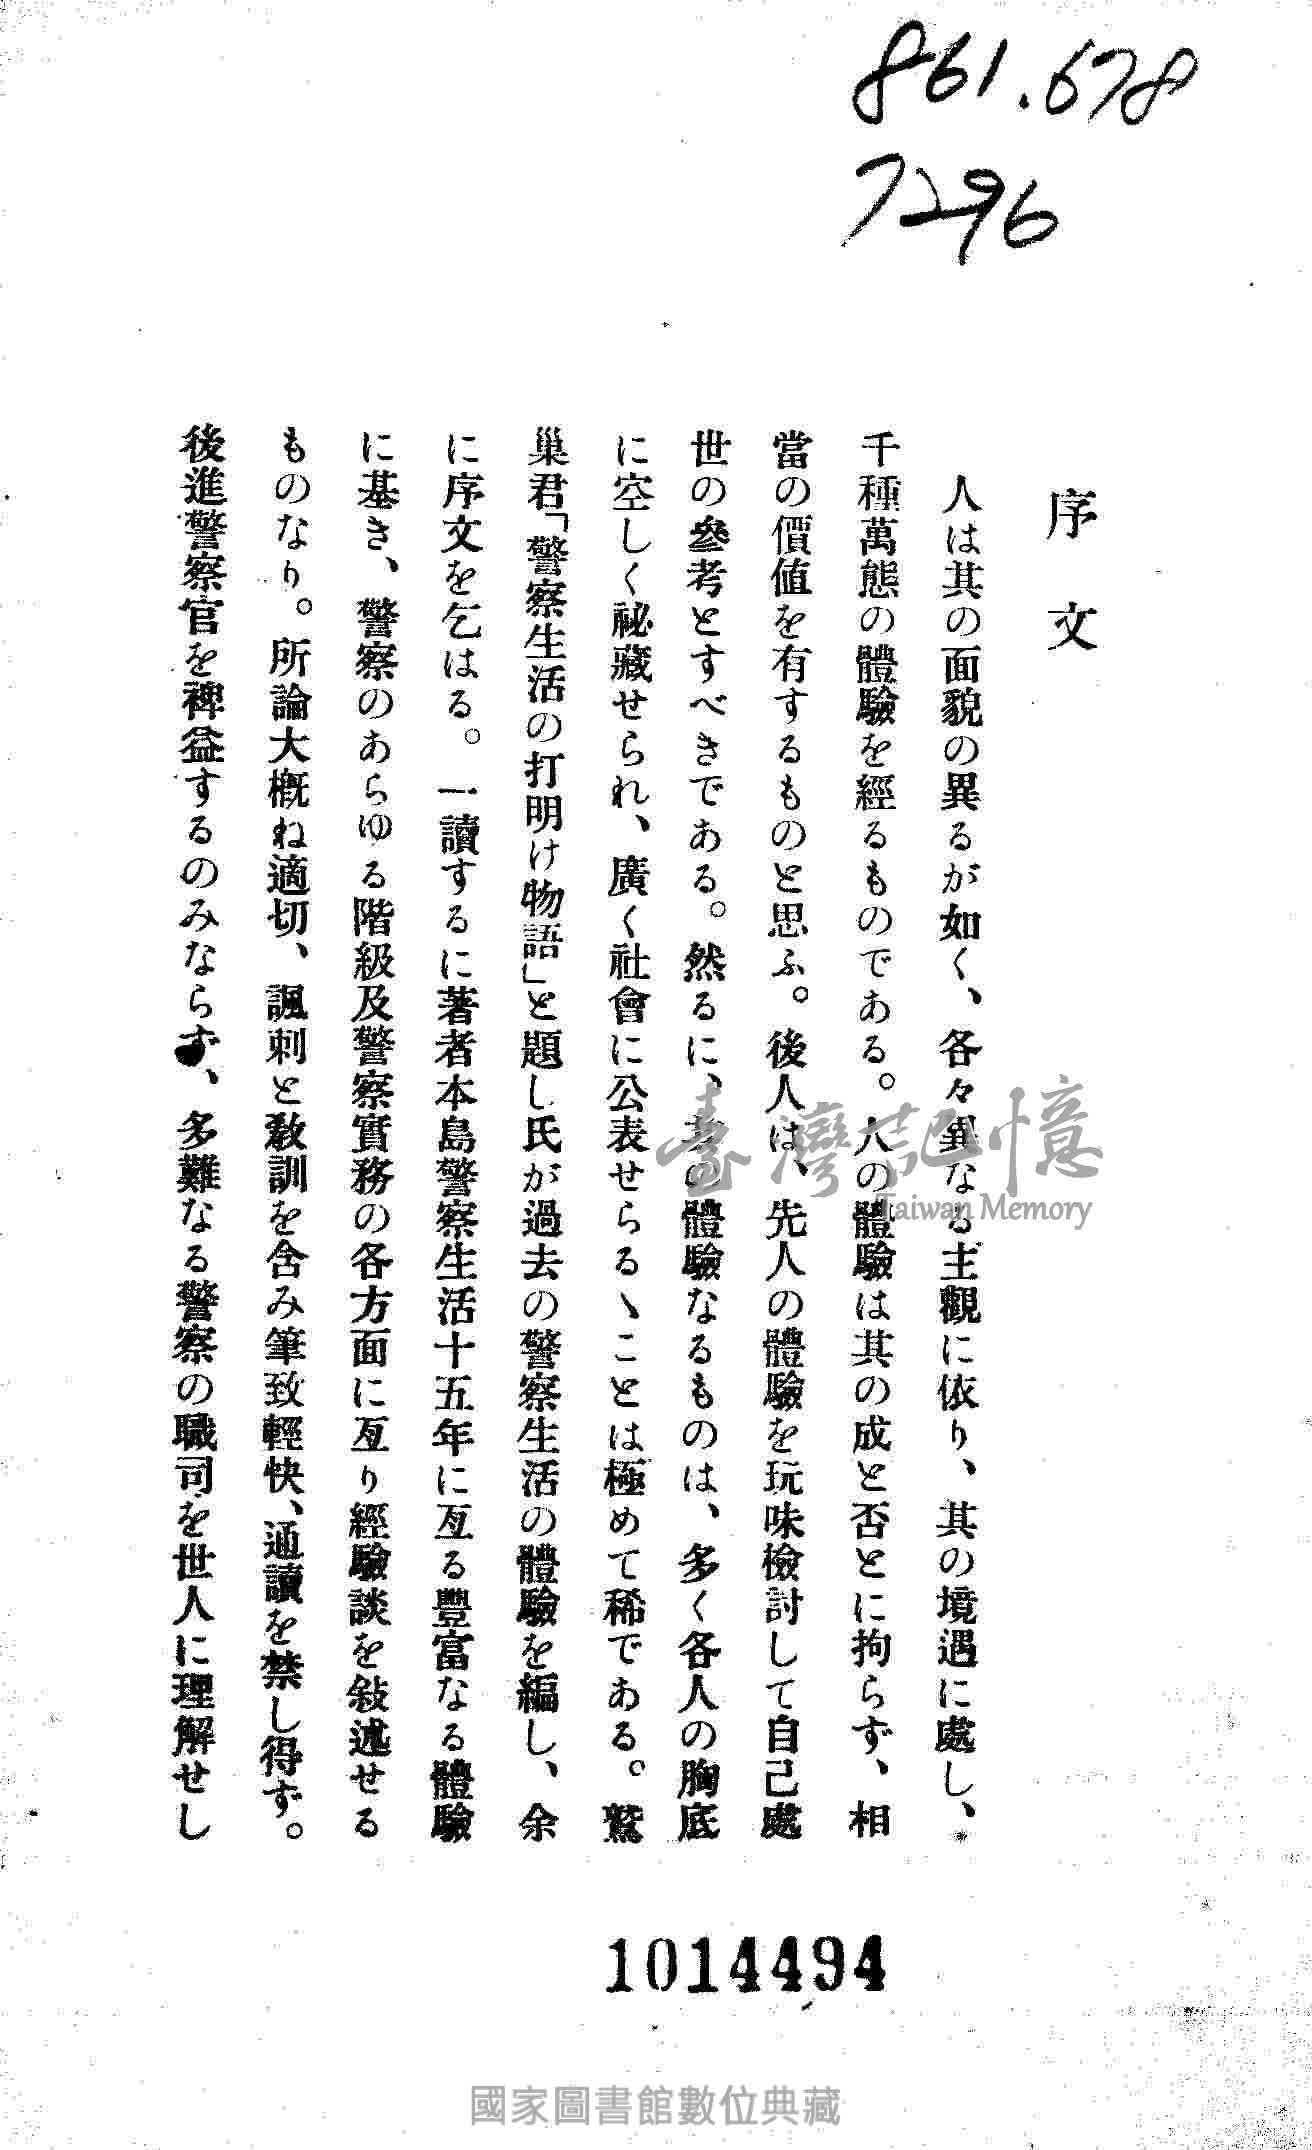 861.678
7296
序文
人は其の面貌の異るが如く、各々異なる主觀に依り、其の境遇に處し、
千種萬態の體驗を經るものである。人の體驗は其の成と否とに拘らず、相
當の價値を有するものと思ふ。後人は、先人の體驗を玩味檢討して自己處
世の參考とすべきである。然るに、其の體驗なるものは、多く各人の胸底
に空しく祕藏せられ、廣く社會に公表せらるゝことは極めて稀である。鷲
巢君「警察生活の打明け物語」と題し氏が過去の警察生活の體驗を編し、余
に序文を乞はる。一讀するに著者本島警察生活十五年に亙る豐富なる體驗
に基き、警察のあらゆる階級及警察實務の各方面に亙り經驗談を敍述せる
ものなり。所論大概ね適切、諷刺と敎訓を含み筆致輕快、通讀を禁し得ず。
後進警察官を裨益するのみならず、多難なる警察の職司を世人に理解せし
臺灣記憶
Taiwan Memory
1014494
國家圖書館數位典藏